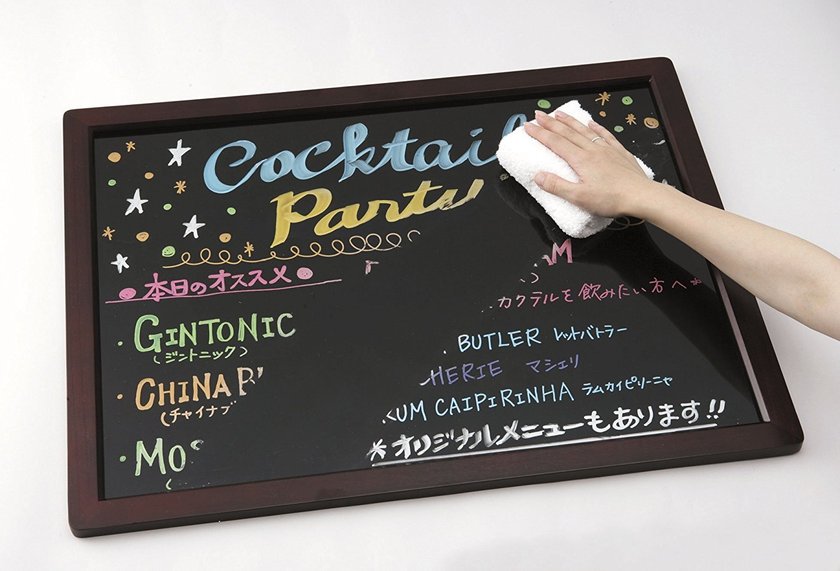 Cocktail
Party
本日のオススメ
・GINTONIC
(ジントニック)
・CHINA
(チャイナブ
・Mos
カクテルを飲みたい方へ
・BUTLER レットバトラー
HERIE マシェリ
UM CAIPIRINHA ラムカイピリーニャ
*オリジナルメニューもあります!!